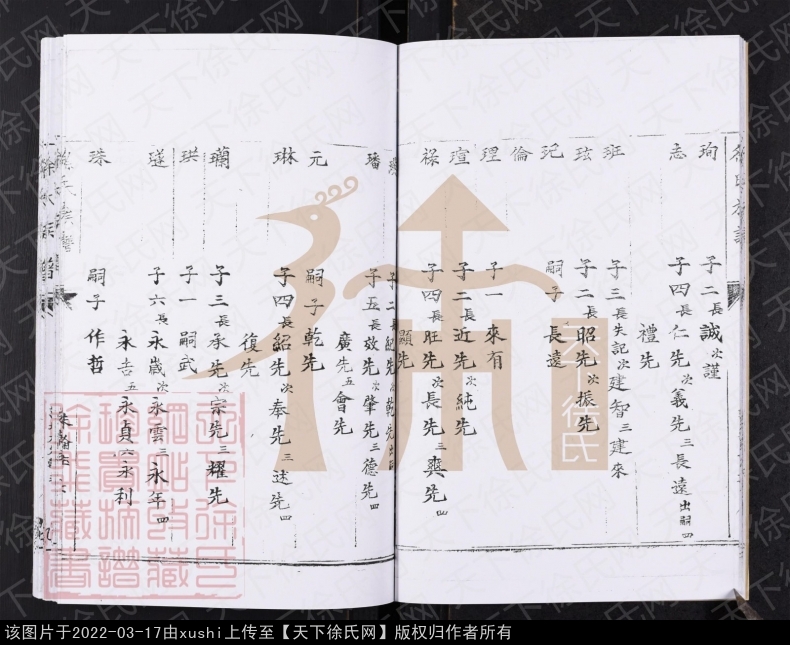 徐氏族譜
珣 子二 長 誠 次 謹
志 子四 長 仁先 次 義先 三 長遠 出嗣 四
禮先
班 子三 長 失記 次 建智 三 建來
玹 子二 長 昭先 次 振先
玘 嗣子 長遠
倫
理 子一 來有
瑄 子二 長 近先 次 純先
祿 子四 長 旺先 次 長先 三 爽先 四
顯先
子二 長 紀先 次 乾先 出嗣
璠 子五 長 效先 次 肇先 三 德先 四
廣先 五 會先
元 嗣子 乾先
琳 子四 長 紹先 次 奉先 三 述先 四
復先
瓓 子三 長 承先 次 宗先 三 耀先
珙 子一 嗣武
璲 子六 長 永歲 次 永雲 三 永年 四
永吉 五 永貞 六 永利
珠 嗣子 作哲
徐氏族譜
天下徐氏
天下徐氏网
该图片于2022-03-17由xushi上传至【天下徐氏网】版权归作者所有